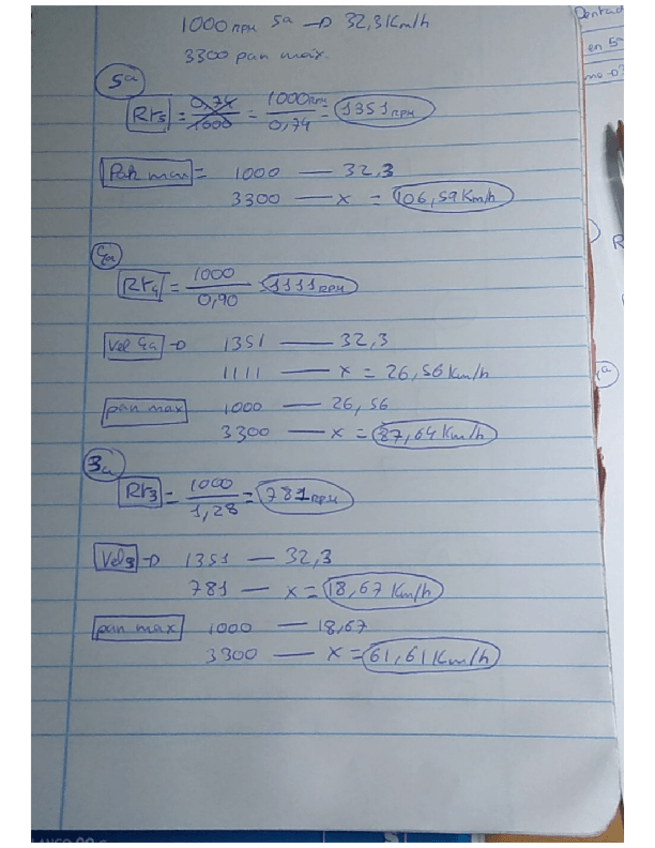 1000 RPM 5a → 32,3 Km/h
3300 par máx.
5a
Rt5 = 0,74 / 1000 = 1000 RPM / 0,74 = 1351 RPM
Par max = 1000 — 32,3
3300 — x = 106,59 Km/h
4a
Rt4 = 1000 / 0,90 = 1111 RPM
Vel 4a → 1351 — 32,3
1111 — x = 26,56 Km/h
par max 1000 — 26,56
3300 — x = 87,64 Km/h
3a
Rt3 = 1000 / 1,28 = 781 RPM
Vel3 → 1351 — 32,3
781 — x = 18,67 Km/h
par max 1000 — 18,67
3300 — x = 61,61 Km/h
en 5a